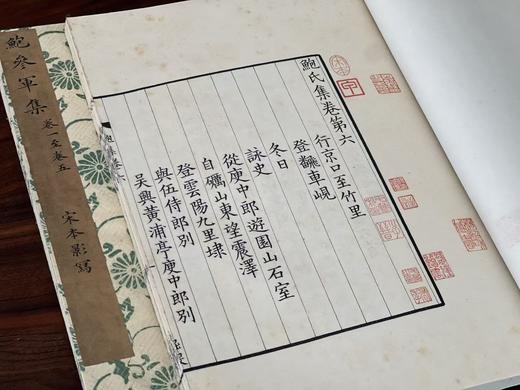 鮑參軍集
卷一至卷五
宋本影寫
鮑氏集卷第六
行京口至竹里
登翻車峴
冬日
詠史
從庾中郎遊園山石室
自礪山東望震澤
登雲陽九里埭
與伍侍郎別
吳興黃浦亭庾中郎別